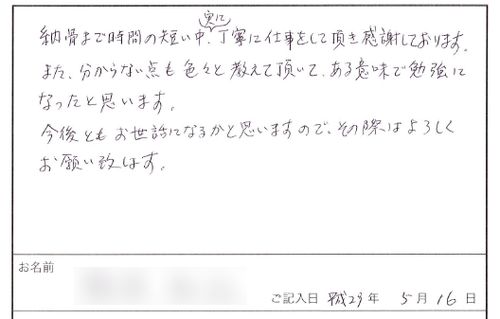 納骨まで時間の短い中、実に丁寧に仕事をして頂き感謝しております。
また、分からない点も色々と教えて頂いて、ある意味で勉強に
なったと思います。
今後ともお世話になるかと思いますので、その際はよろしく
お願い致します。
お名前
ご記入日 平成29年 5月16日